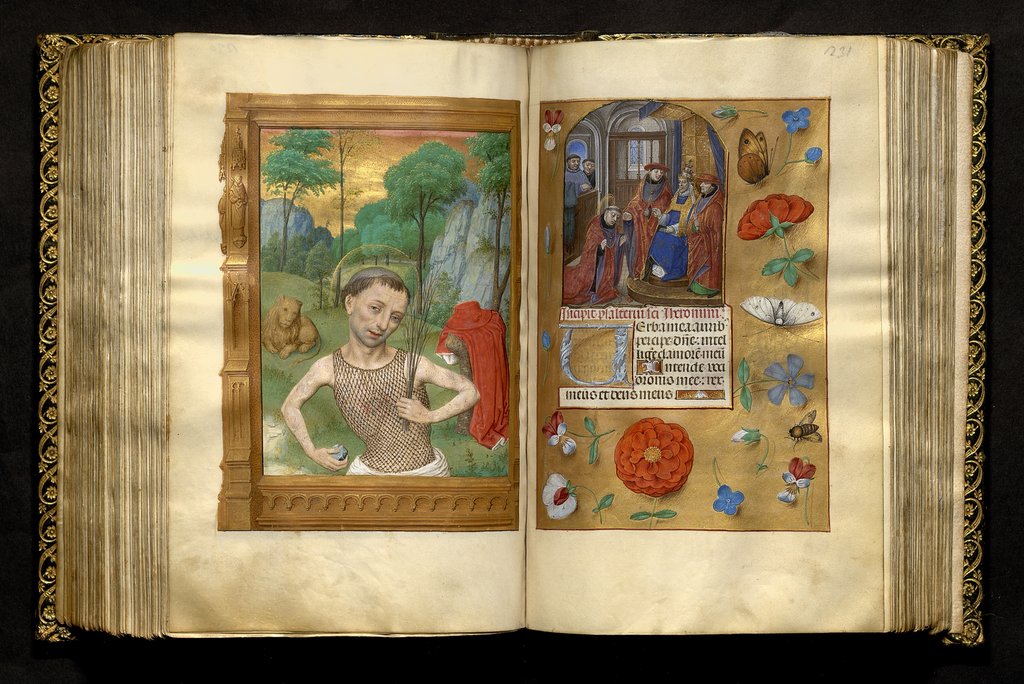 231
Incipit psalteriu sci Jheronimi.
Verba mea aurib
percipe dñe: intel
lige clamorē meū
Intende voci
orōnis mee: rex
meus et deus meus